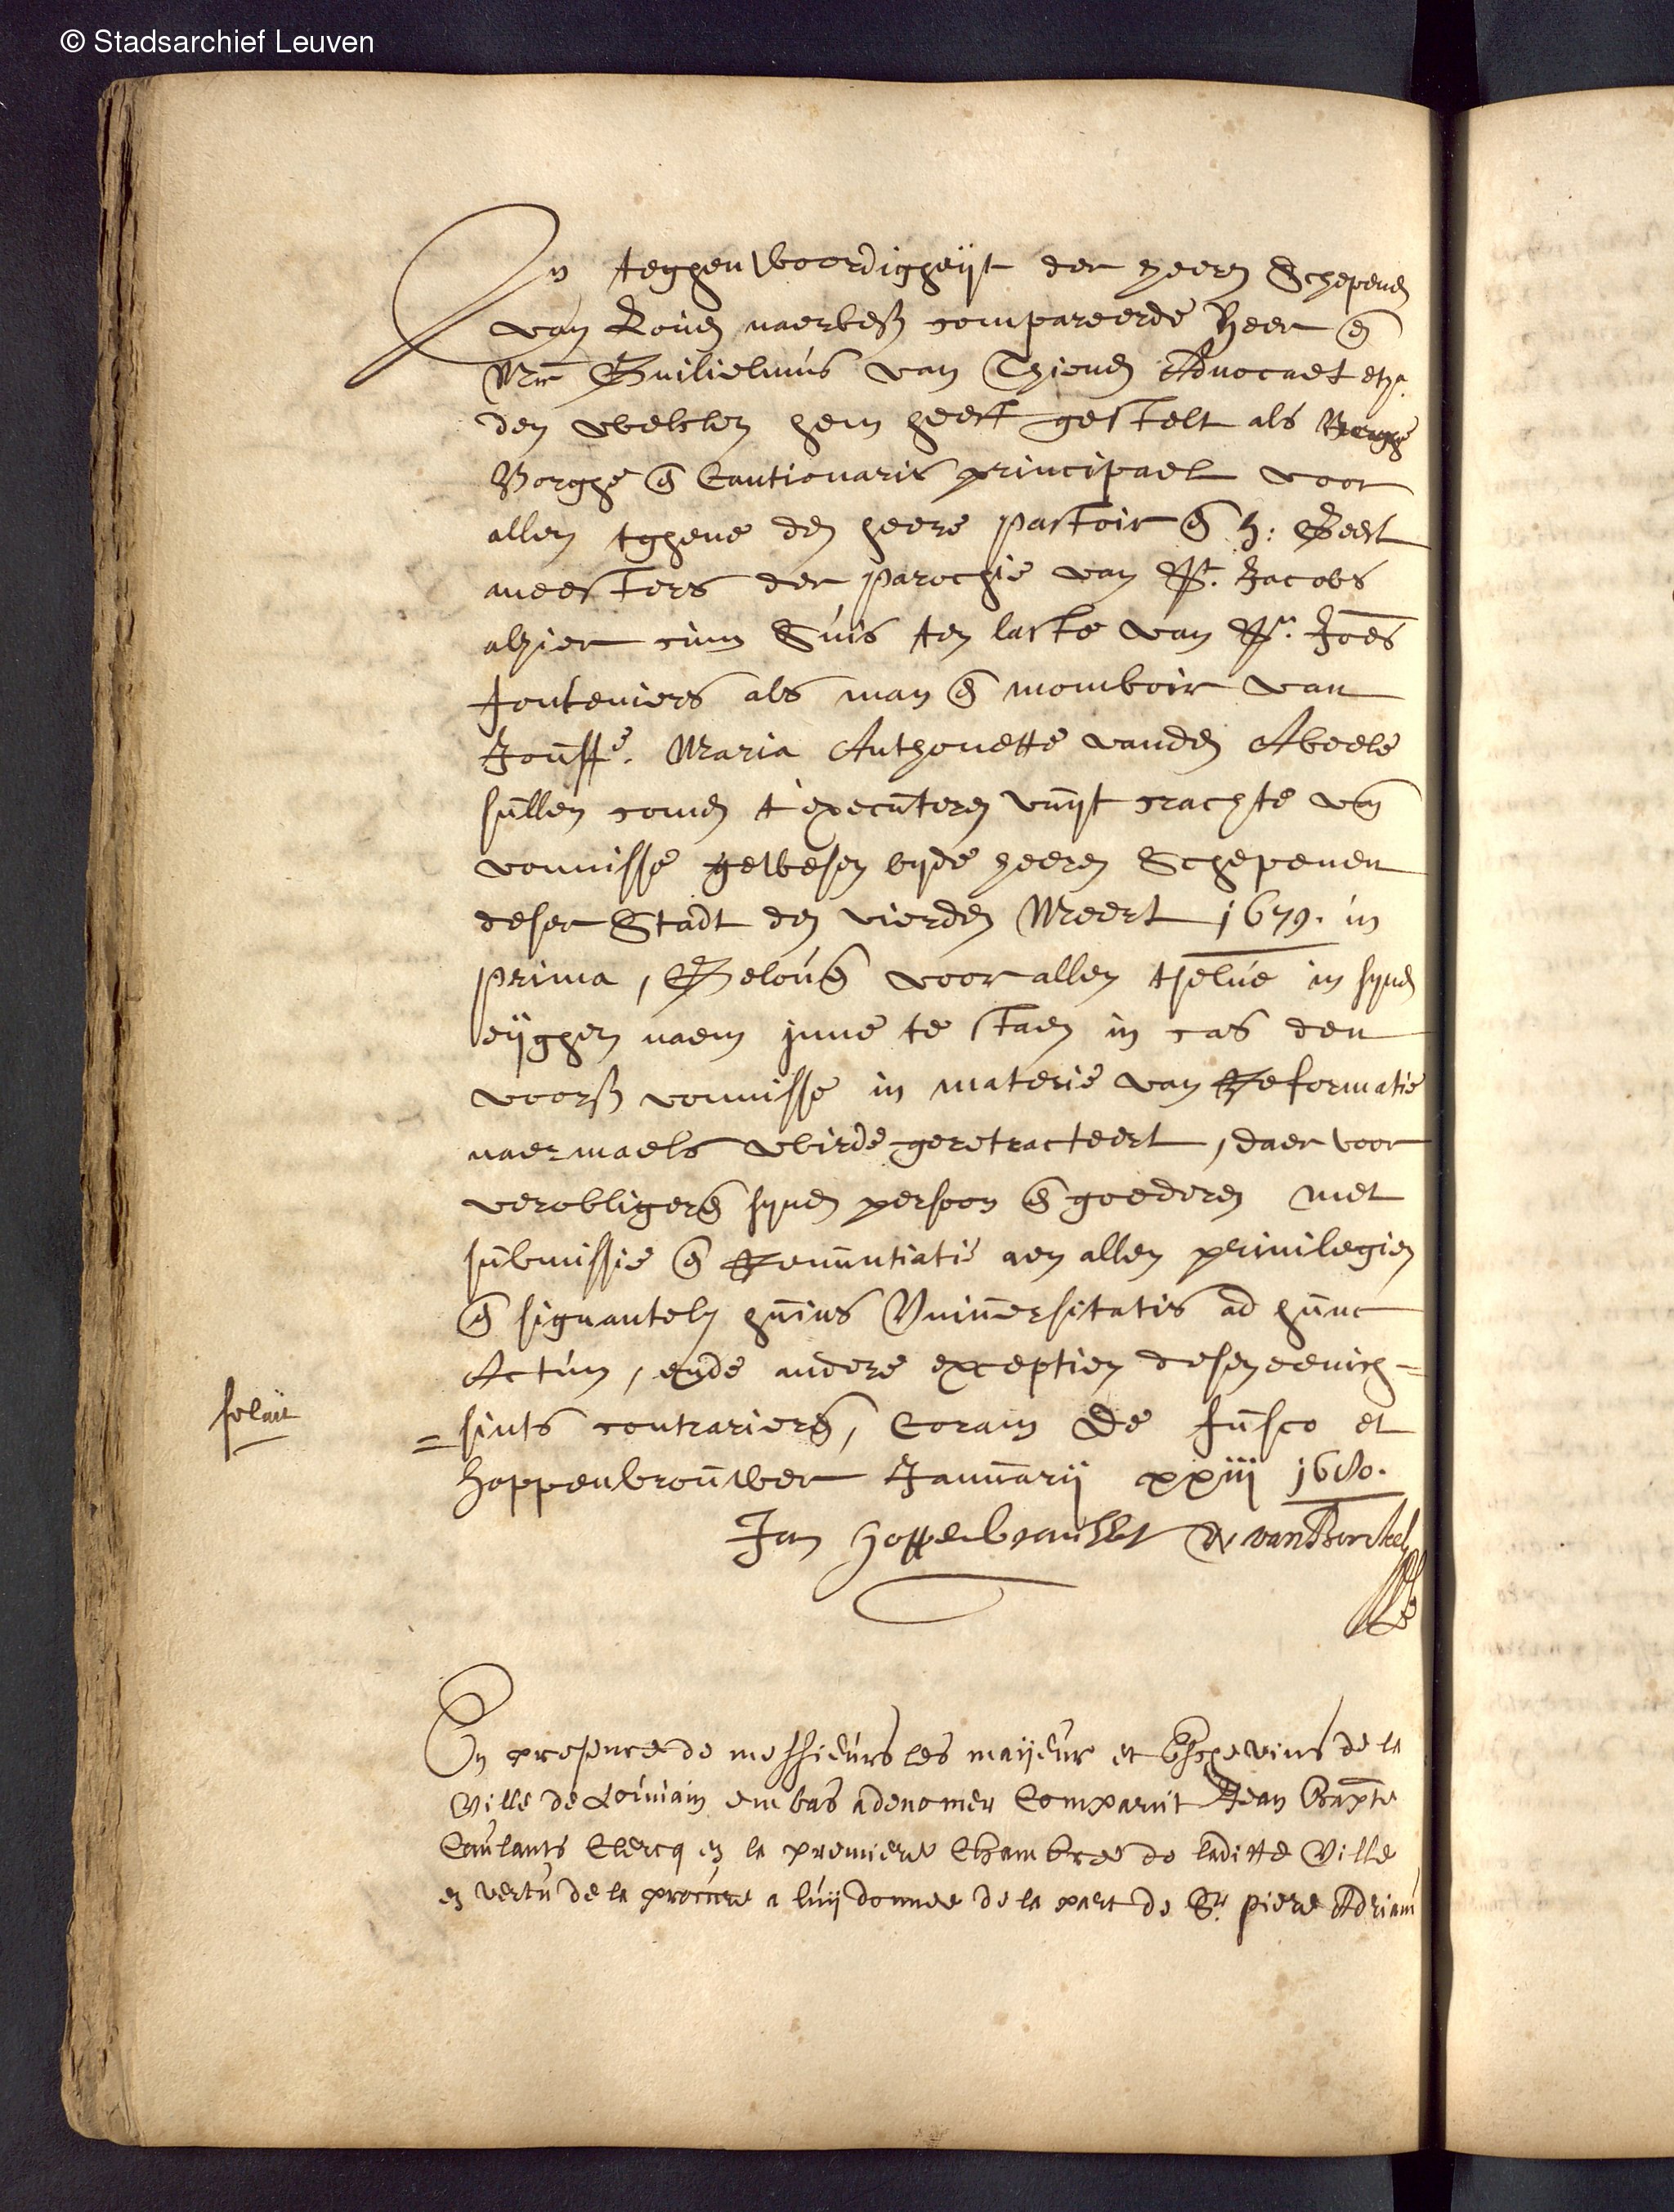 © Stadsarchief Leuven
In tegghenwoordigheyt der heeren Schepenen
van Loven naerbes. compareerde Heer en
Mr Guilielmus van Thienen Advocaet etc.
den welcken hem heeft gestelt als
Borghe en Cautionaris principael voor
allen tghene den heere pastoir en H: Geest
meesters der parochie van St. Jacobs
alhier cum suis ten laste van Sr. Joes
als man en momboir van
Jouffe. Maria Anthonette vanden Abeele
sullen comen t'executeren vuyt crachte van
vonnisse gewesen byde heeren Schepenen
deser Stadt den vierden Meert 1679. in
prima, Geloven voor allen tselve in synen
eyghen naem inne te staen in cas den
voors vonnisse in materie van Reformatie
naermaels wirde geretracteert, daer voor
verobligeren synen persoon en goederen met
submissie en Renuntiatie aen allen privilegien
en signantelyck huius Universitatis ad hunc
Actum, ende andere exceptien desen eenich-
=sints contrarieren, Coram De Fusco et
Hoppenbrouwer Januarij xxiii 1680.
solvit
Jan Hoppenbrouwer W van Borckel
En presence de messieurs les maijeur et Eschevins de la
Ville de Louvain embas a denomer Comparuit Jean Bapte
Caulants Clercq en la premiere Chambre de laditte Ville
en vertu de la procure a luij donnee de la part de Sr. piere Adriani